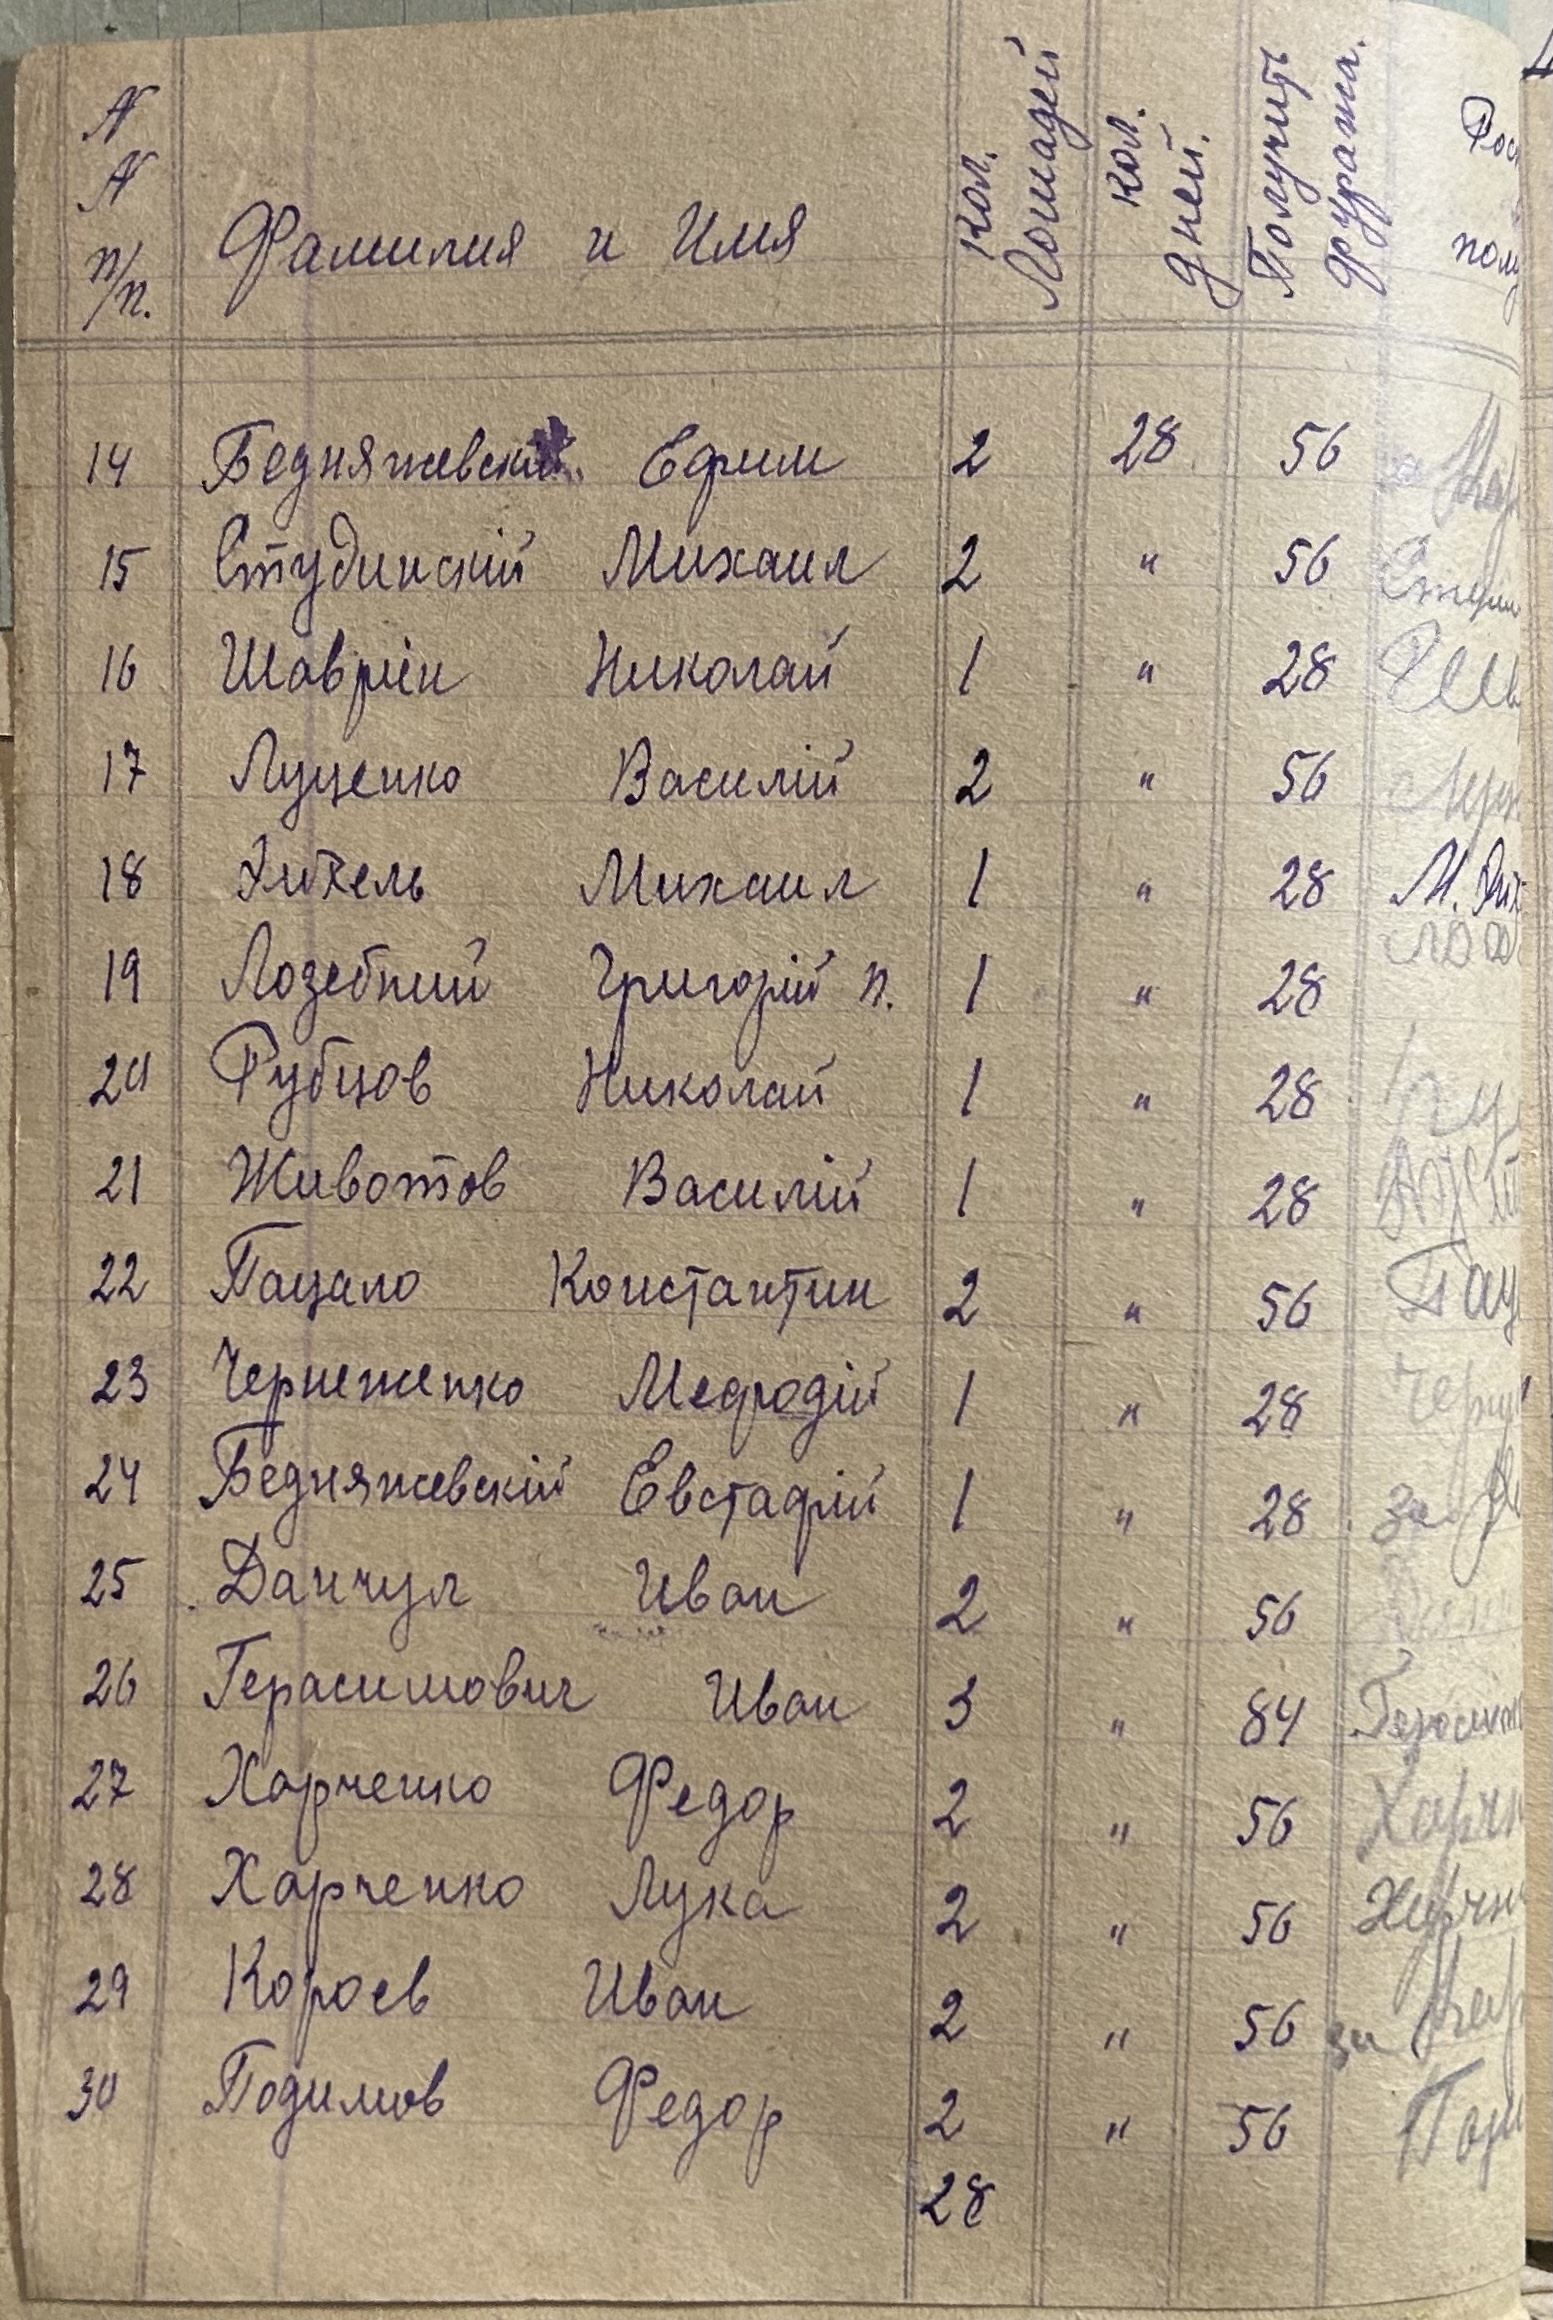 N N п/п. Фамилия и Имя кол. Лошадей кол. дней. Получить фуража.
14 Бедняжевскій Ефим 2 28 56
15 Студинскій Михаил 2 " 56
16 Шавріин Николай 1 " 28
17 Луценко Василій 2 " 56
18 Михаил 1 " 28 М.
19 Лозебний Григорій п. 1 " 28
20 Рубцов Николай 1 " 28
21 Животов Василій 1 " 28
22 Пацало Константин 2 " 56
23 Чернеженко Мефодій 1 " 28
24 Бедняжевскій Евстафій 1 " 28 за
25 Данчул Иван 2 " 56
26 Герасимович Иван 3 " 84
27 Харченко Федор 2 " 56
28 Харченко Лука 2 " 56
29 Короев Иван 2 " 56 за
30 Подимов Федор 2 " 56
28